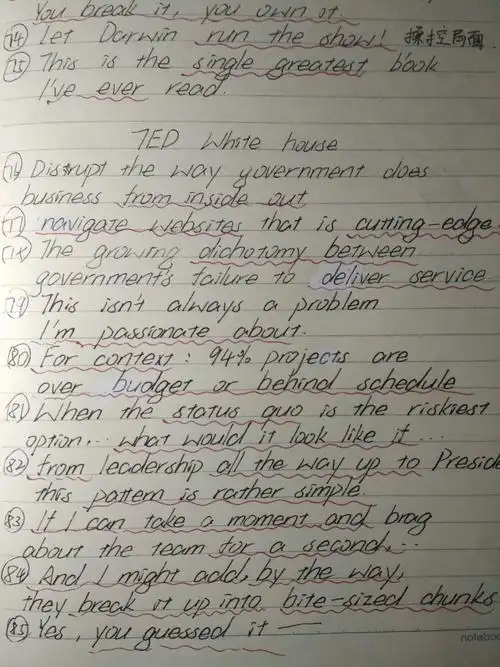 You break it, you own it.
74 Let Darwin run the show! 操控局面
75 This is the single greatest book
I've ever read.
TED White house
76 Distrupt the way government does
business from inside out
77 navigate websites that is cutting-edge
78 The growing dichotomy between
government's failure to deliver service
79 This isn't always a problem
I'm passionate about.
80 For context: 94% projects are
over budget or behind schedule
81 When the status quo is the riskiest
option... what would it look like if...
82 from leadership all the way up to Preside
this pattern is rather simple.
83 If I can take a moment and brag
about the team for a second,...
84 And I might add, by the way,
they break it up into bite-sized chunks
85 Yes, you guessed it —
notebook